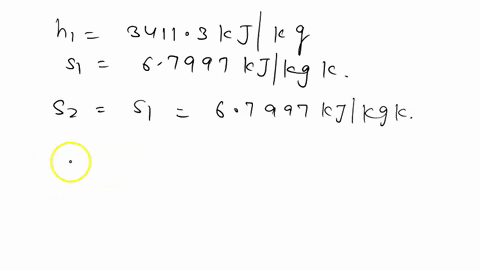 h₁ = 3411.3 kJ/kg
s₁ = 6.7997 kJ/kg k.
s₂ = s₁ = 6.7997 kJ/kgk.